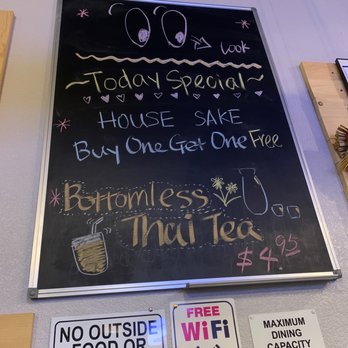 Look
~Today Special~
HOUSE SAKE
Buy One Get One Free
Bottomless
Thai Tea
$4.95
NO OUTSIDE
FOOD OR
FREE
WiFi
MAXIMUM
DINING
CAPACITY